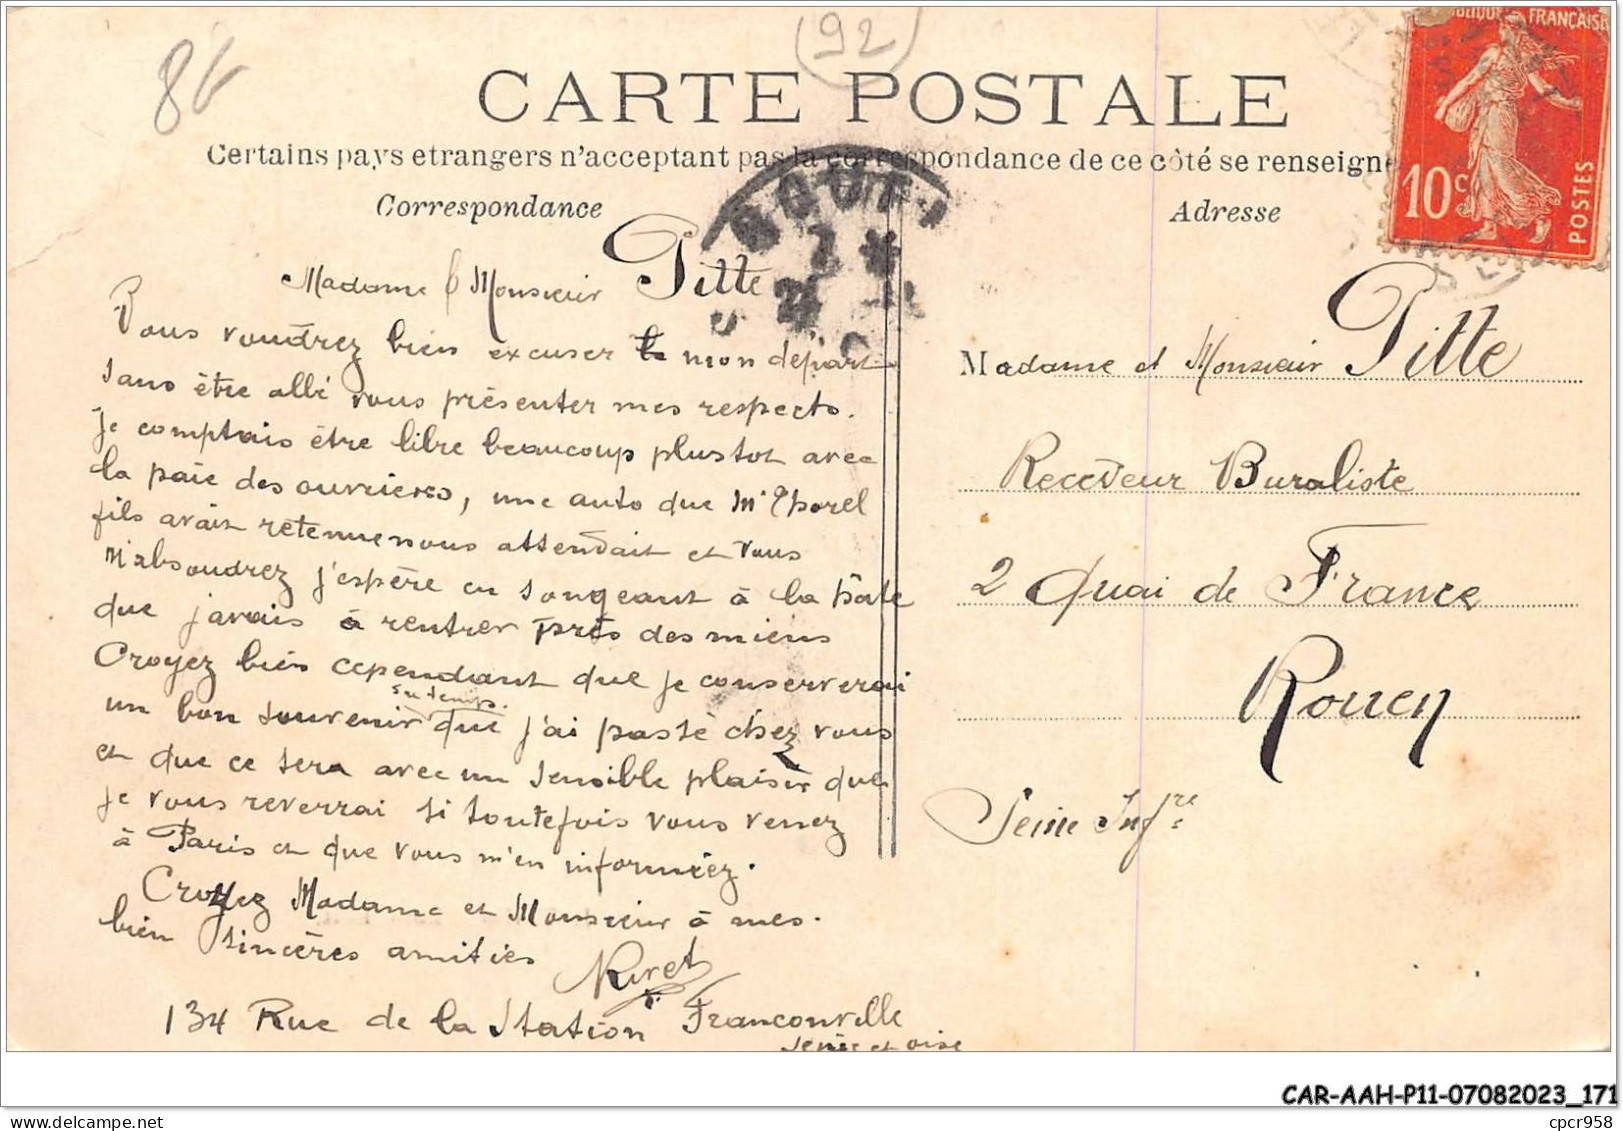 (92)
86
CARTE POSTALE
Certains pays etrangers n'acceptant pas la correspondance de ce côté se renseigne
Correspondance
Adresse
RÉPUBLIQUE FRANÇAISE
10c
POSTES
Madame & Monsieur Pitte
Vous voudrez bien excuser mon départ
sans être allé vous présenter mes respects.
Je comptais être libre beaucoup plustot avec
la paie des ouvrieres, une auto que Mr Thorel
fils avait retenue nous attendait et vous
m'absoudrez j'espère en songeant à la hâte
que j'avais à rentrer près des miens
Croyez bien cependant que je conserverai
du temps.
un bon souvenir que j'ai passé chez vous
et que ce sera avec un sensible plaisir que
je vous reverrai si toutefois vous venez
à Paris et que vous m'en informiez.
Croyez Madame et Monsieur à mes.
bien sincères amitiés
134 Rue de la Station Franconville
Seine et oise
Madame et Monsieur Pitte
Receveur Buraliste
2 Quai de France
Rouen
Seine Infre
CAR-AAH-P11-07082023_171
cpcr958